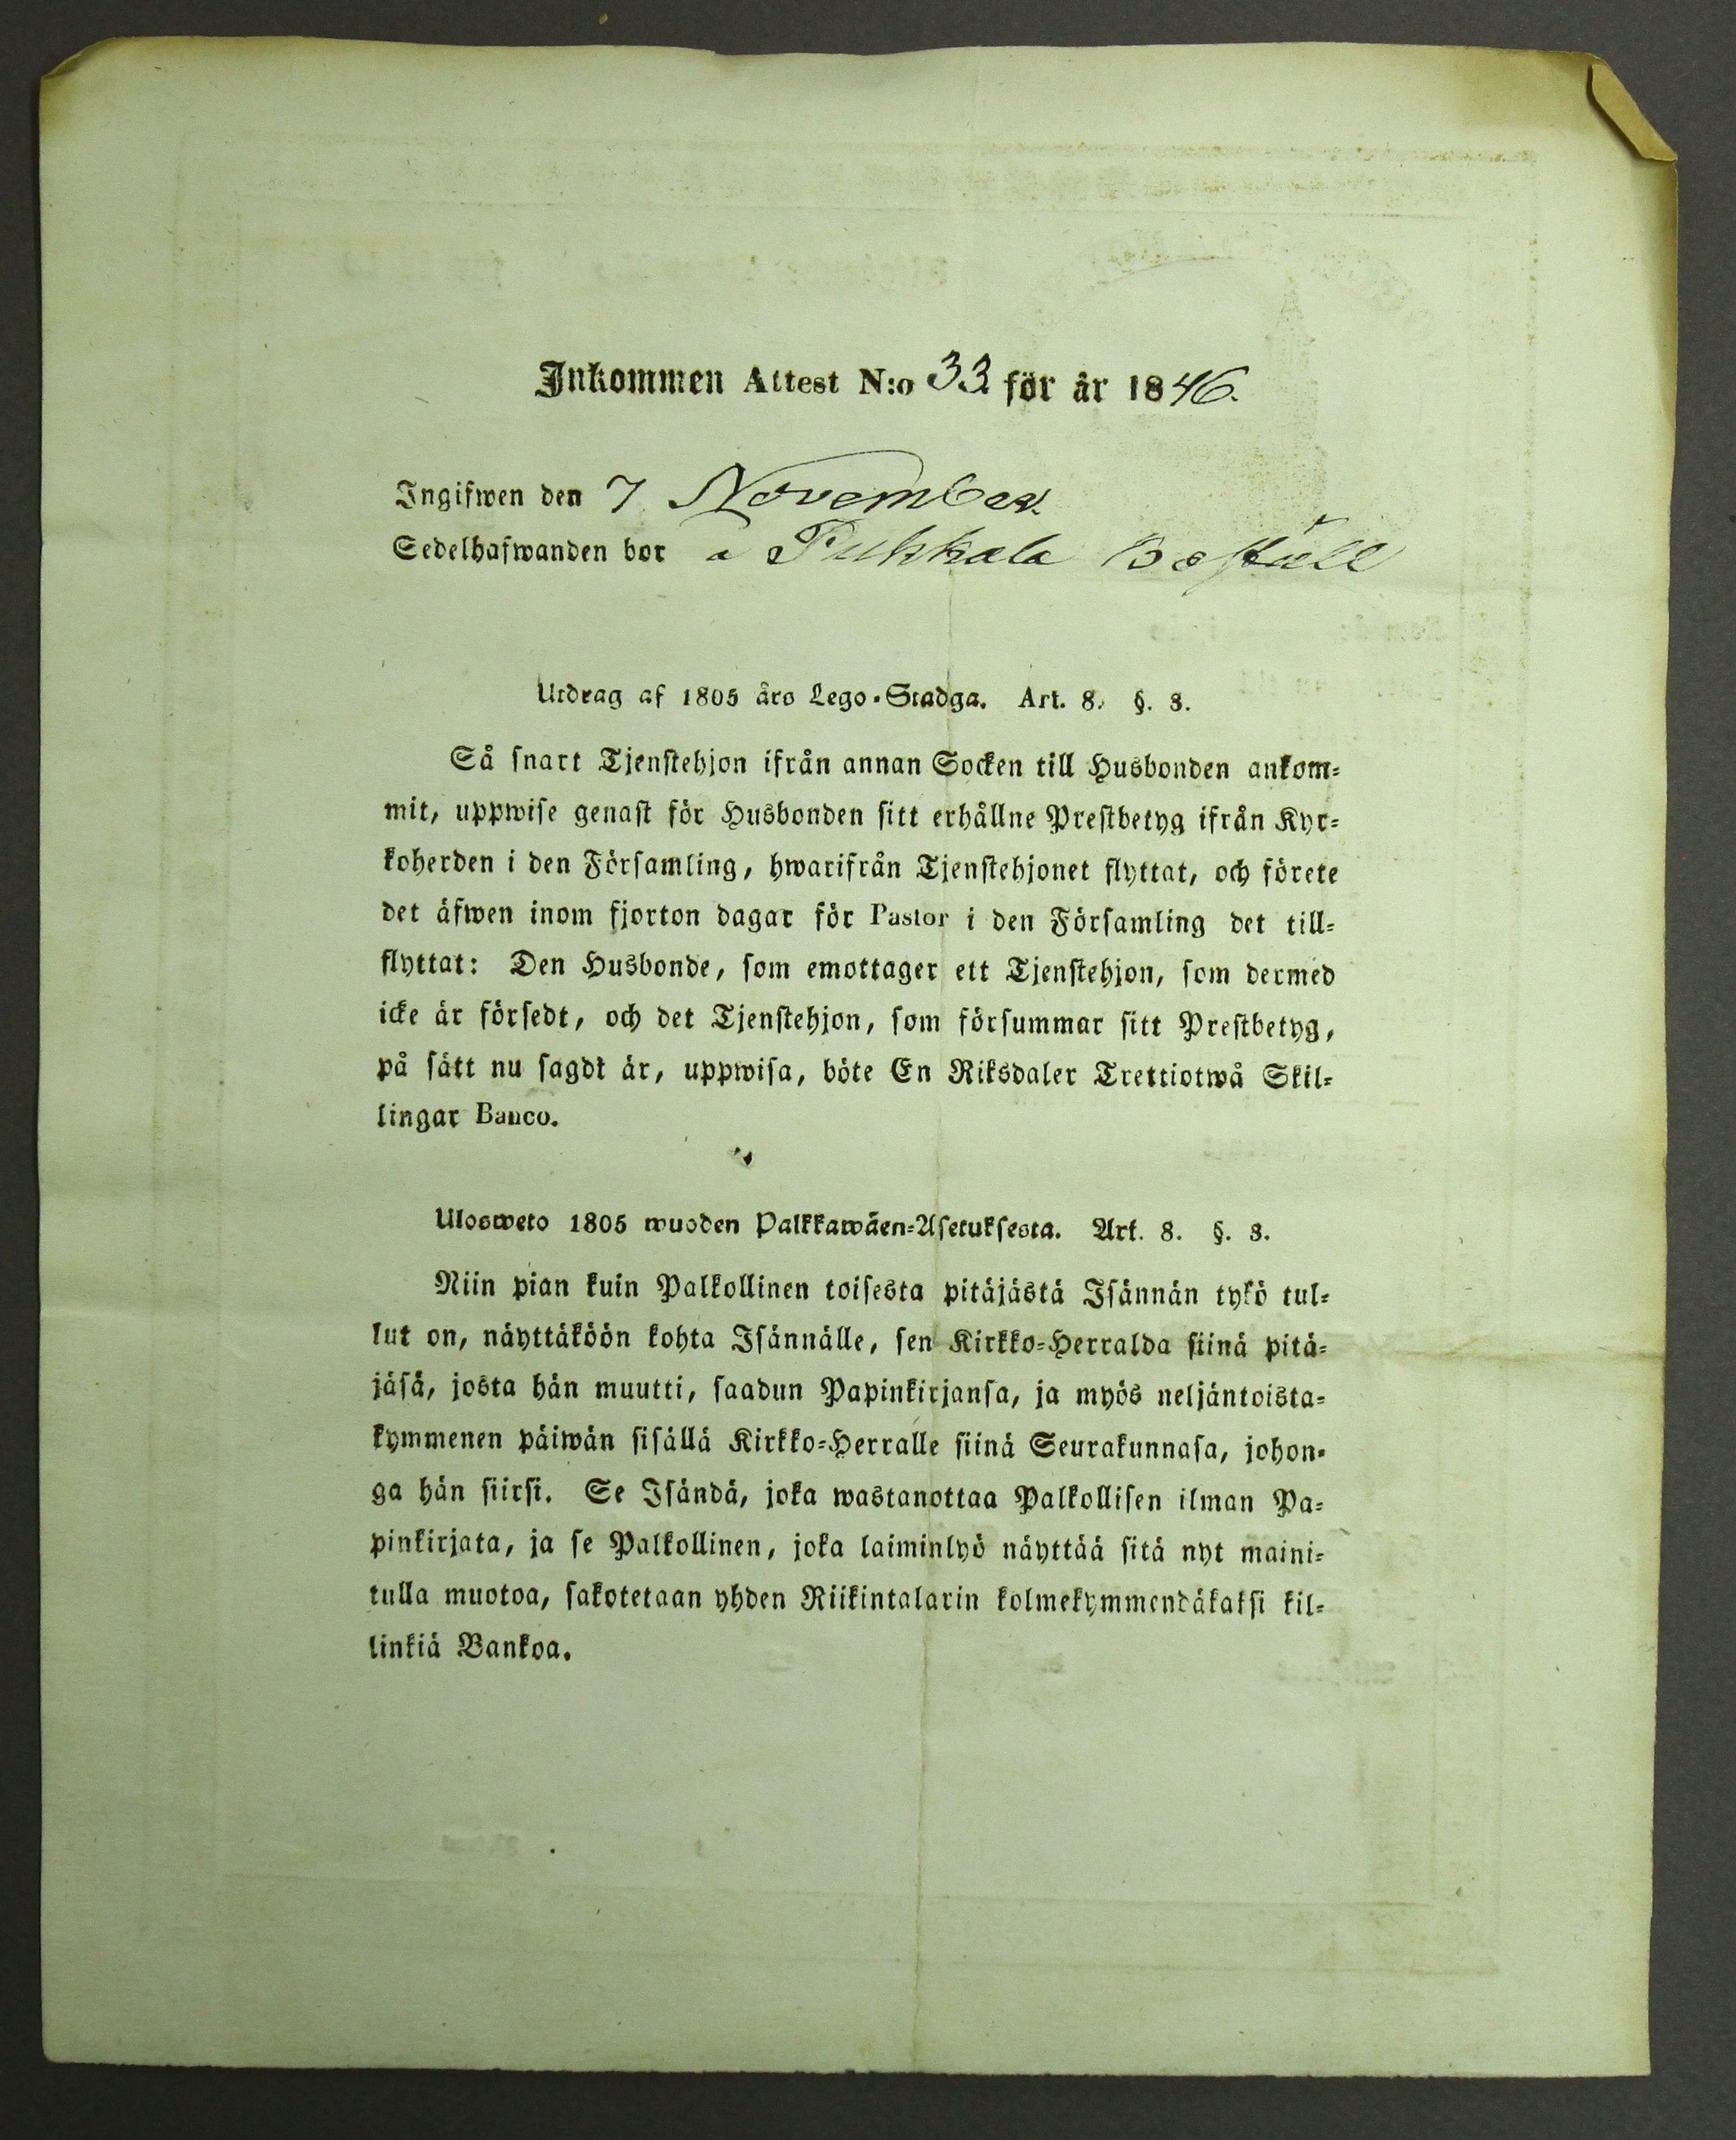 Inkommen Attest N:o 33 för år 1846.
Ingifwen den 7 November.
Sedelhafwanden bor a Pukkala Boställ
Utdrag af 1805 års Lego-Stadga. Art. 8. §. 3.
Så snart Tjenstehjon ifrån annan Socken till Husbonden ankom-
mit, uppwise genast för Husbonden sitt erhållne Prestbetyg ifrån Kyr-
koherden i den Församling, hwarifrån Tjenstehjonet flyttat, och förete
det äfwen inom fjorton dagar för Pastor i den Församling det till-
flyttat: Den Husbonde, som emottager ett Tjenstehjon, som dermed
icke är försedt, och det Tjenstehjon, som försummar sitt Prestbetyg,
på sätt nu sagdt är, uppwisa, böte En Riksdaler Trettiotwå Skil-
lingar Banco.
Ulosweto 1805 wuoden Palkkawäen-Asetuksesta. Art. 8. §. 3.
Niin pian kuin Palkollinen toisesta pitäjästä Isännän tykö tul-
lut on, näyttäköön kohta Isännälle, sen Kirkko-Herralda siinä pitä-
jäsä, josta hän muutti, saadun Papinkirjansa, ja myös neljäntoista-
kymmenen päiwän sisällä Kirkko-Herralle siinä Seurakunnasa, johon-
ga hän siirsi. Se Isändä, joka wastanottaa Palkollisen ilman Pa-
pinkirjata, ja se Palkollinen, joka laiminlyö näyttää sitä nyt maini-
tulla muotoa, sakotetaan yhden Riikintalarin kolmekymmendäkaksi kil-
linkiä Bankoa.